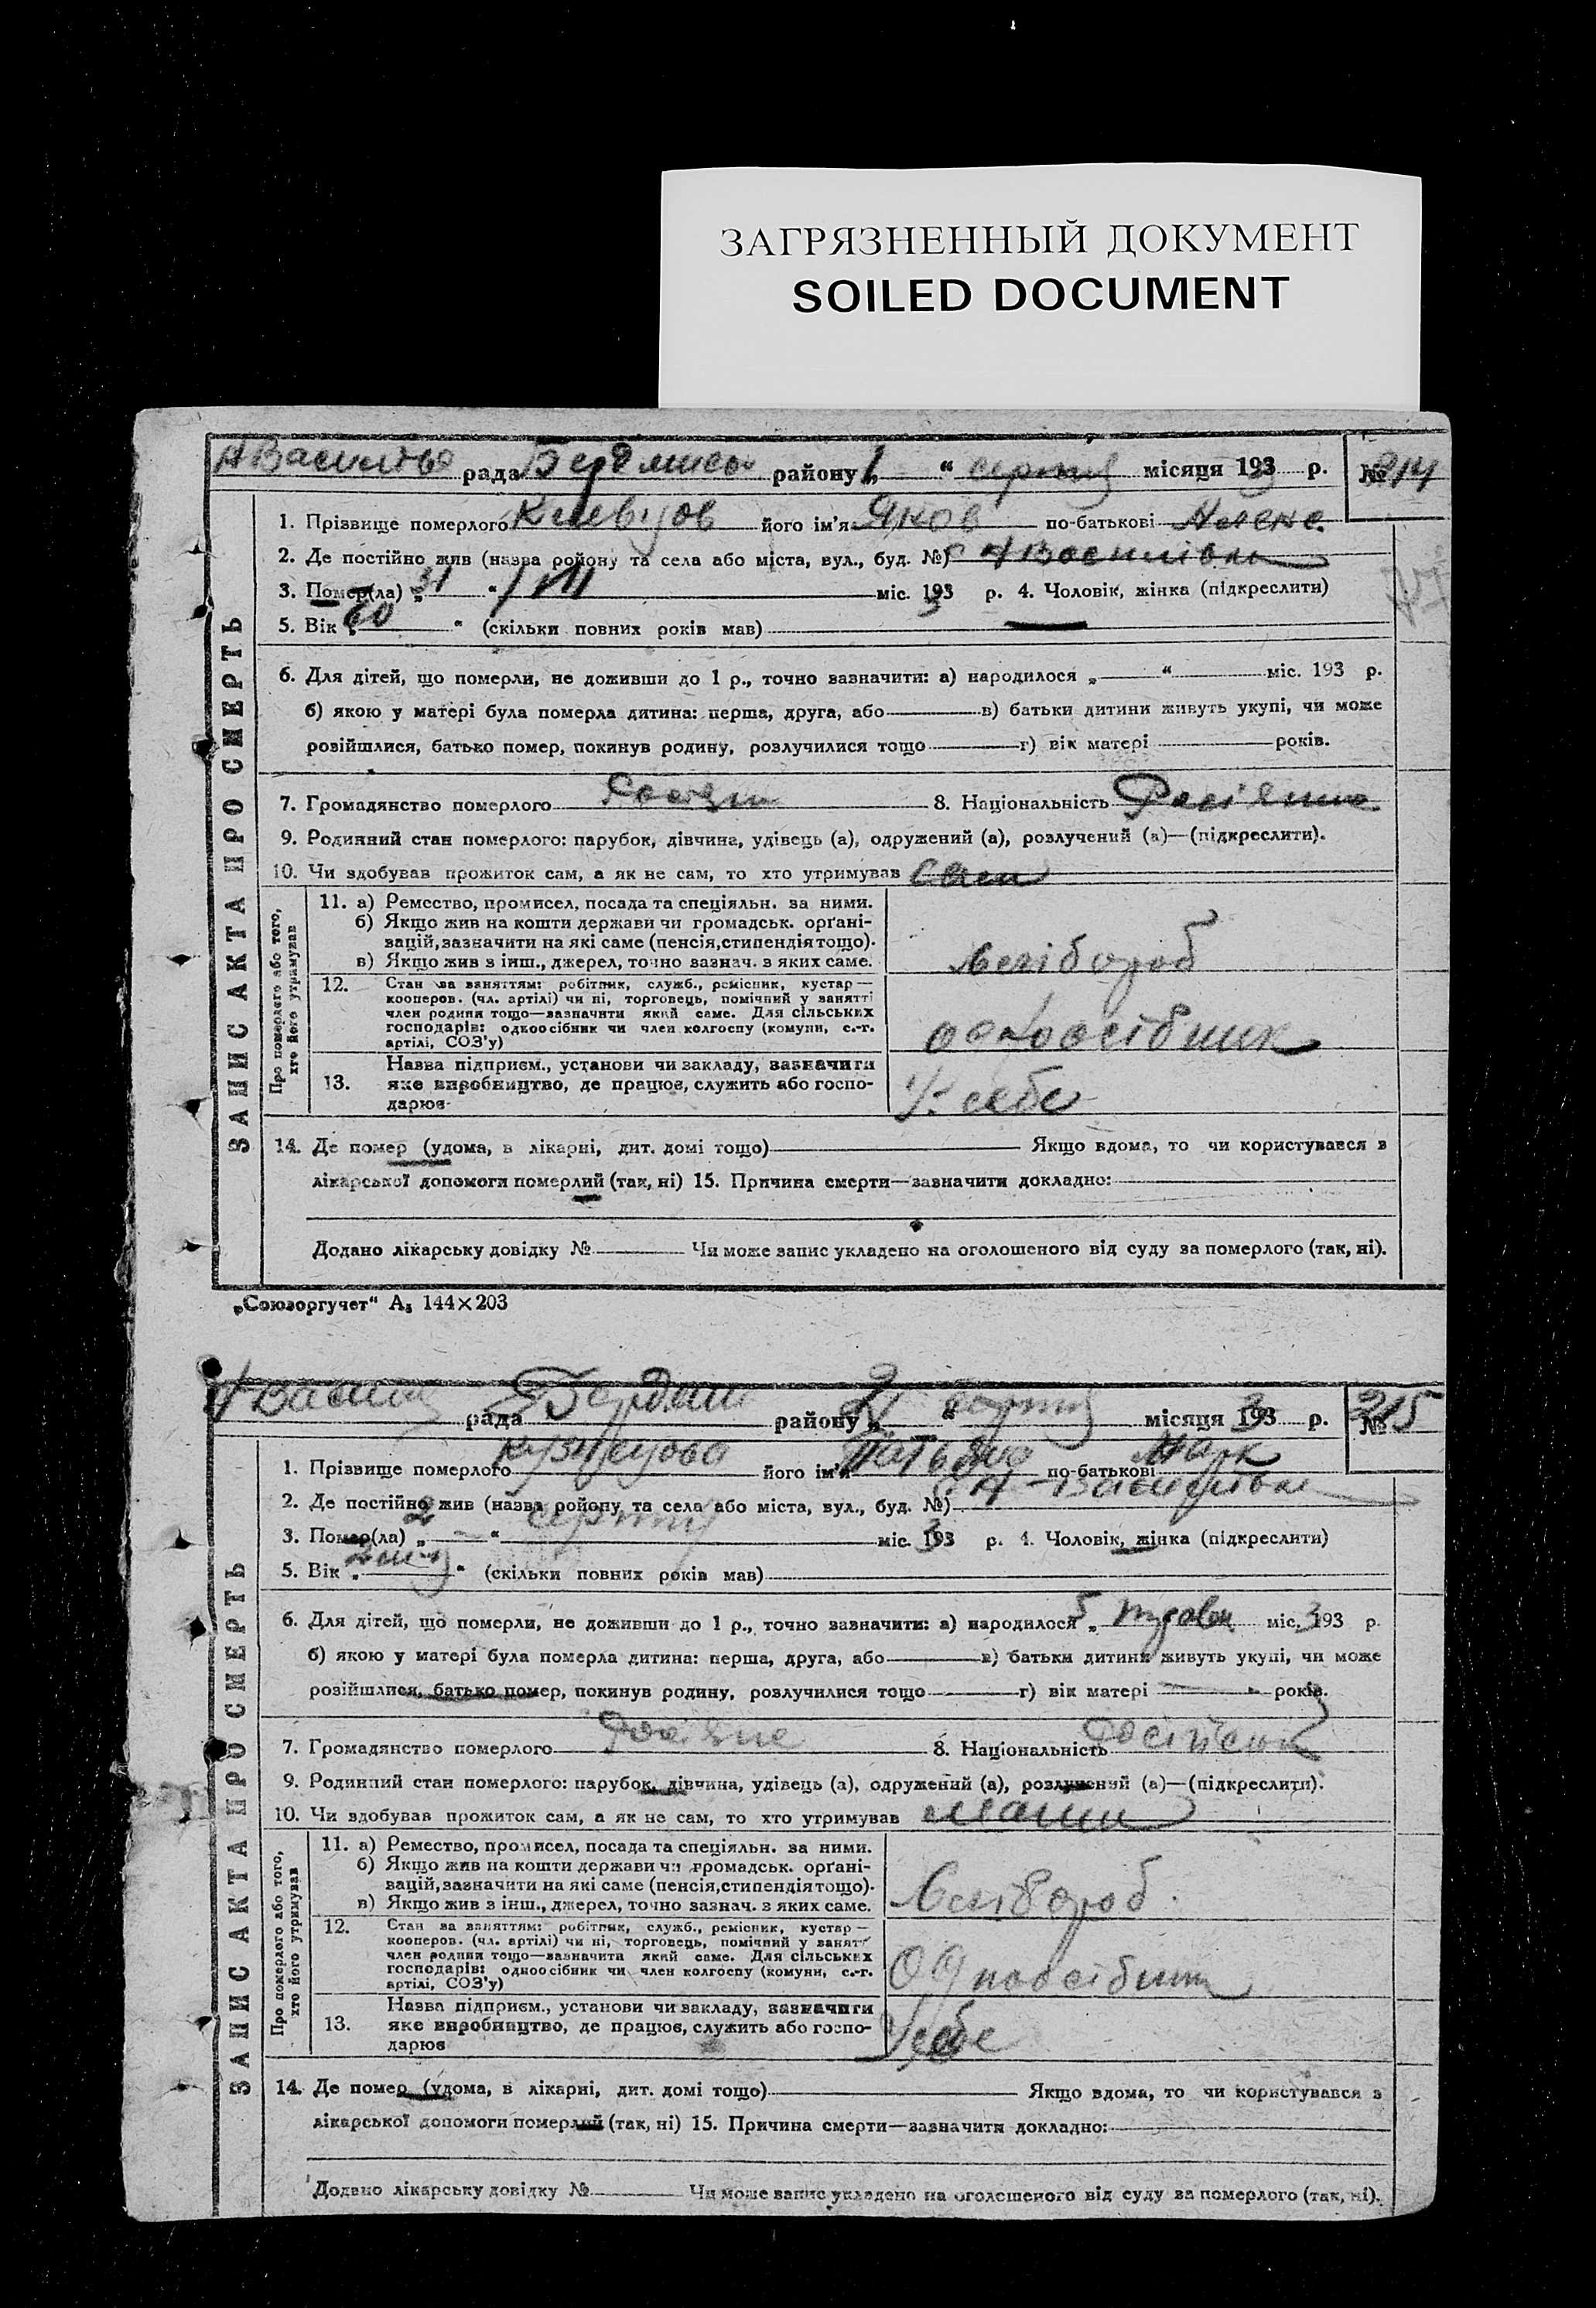 ЗАГРЯЗНЕННЫЙ ДОКУМЕНТ
SOILED DOCUMENT
рада району 1 „ “ серпня місяця 193 3 р. № 214
ЗАПИС АКТА ПРО СМЕРТЬ
1. Прізвище померлого його ім'я Яков по-батькові
2. Де постійно жив (назва району та села або міста, вул., буд. №) с А Василівка
3. Помер(ла) „ 31 “ / VII міс. 193 3 р. 4. Чоловік, жінка (підкреслити)
5. Вік „ 60 “ (скільки повних років мав)
6. Для дітей, що померли, не доживши до 1 р., точно зазначити: а) народилося „ “ міс. 193 р.
б) якою у матері була померла дитина: перша, друга, або в) батьки дитини живуть укупі, чи може
розійшлися, батько помер, покинув родину, розлучилися тощо г) вік матері років.
7. Громадянство померлого 8. Національність
9. Родинний стан померлого: парубок, дівчина, удівець (а), одружений (а), розлучений (а)—(підкреслити).
10. Чи здобував прожиток сам, а як не сам, то хто утримував Сам
Про померлого або того, хто його утримував
11. а) Ремество, промисел, посада та спеціяльн. за ними.
б) Якщо жив на кошти держави чи громадськ. орґані-
зацій, зазначити на які саме (пенсія, стипендія тощо).
в) Якщо жив з інш., джерел, точно зазнач. з яких саме.
хлібороб
12. Стан за заняттям: робітник, служб., ремісник, кустар—
кооперов. (чл. артілі) чи ні, торговець, помічний у занятті
член родини тощо—зазначити який саме. Для сільських
господарів: одноосібник чи член колгоспу (комуни, с.-г.
артілі, СОЗ'у)
одноосібник
13. Назва підприєм., установи чи закладу, зазначити
яке виробництво, де працює, служить або госпо-
дарює.
У себе
14. Де помер (удома, в лікарні, дит. домі тощо) Якщо вдома, то чи користувався з
лікарської допомоги померлий (так, ні) 15. Причина смерти—зазначити докладно:
Додано лікарську довідку № Чи може запис укладено на оголошеного від суду за померлого (так, ні).
„Союзоргучет“ А₅ 144×203
рада району 2 „ “ серпня місяця 193 3 р. № 215
ЗАПИС АКТА ПРО СМЕРТЬ
1. Прізвище померлого Кузнецова його ім'я Татьяна по-батькові Марк
2. Де постійно жив (назва району та села або міста, вул., буд. №) с А-Василівка
3. Помер(ла) „ 2 “ серпня міс. 193 3 р. 4. Чоловік, жінка (підкреслити)
5. Вік „ “ (скільки повних років мав)
6. Для дітей, що померли, не доживши до 1 р., точно зазначити: а) народилося „ 5 травня міс. 193 3 р.
б) якою у матері була померла дитина: перша, друга, або в) батьки дитини живуть укупі, чи може
розійшлися, батько помер, покинув родину, розлучилися тощо г) вік матері років.
7. Громадянство померлого 8. Національність
9. Родинний стан померлого: парубок, дівчина, удівець (а), одружений (а), розлучений (а)—(підкреслити).
10. Чи здобував прожиток сам, а як не сам, то хто утримував мати
Про померлого або того, хто його утримував
11. а) Ремество, промисел, посада та спеціяльн. за ними.
б) Якщо жив на кошти держави чи громадськ. орґані-
зацій, зазначити на які саме (пенсія, стипендія тощо).
в) Якщо жив з інш., джерел, точно зазнач. з яких саме.
хлібороб
12. Стан за заняттям: робітник, служб., ремісник, кустар—
кооперов. (чл. артілі) чи ні, торговець, помічний у занятті
член родини тощо—зазначити який саме. Для сільських
господарів: одноосібник чи член колгоспу (комуни, с.-г.
артілі, СОЗ'у)
одноосібник
13. Назва підприєм., установи чи закладу, зазначити
яке виробництво, де працює, служить або госпо-
дарює
У себе
14. Де помер (удома, в лікарні, дит. домі тощо) Якщо вдома, то чи користувався з
лікарської допомоги померлий (так, ні) 15. Причина смерти—зазначити докладно:
Додано лікарську довідку № Чи може запис укладено на оголошеного від суду за померлого (так, ні).